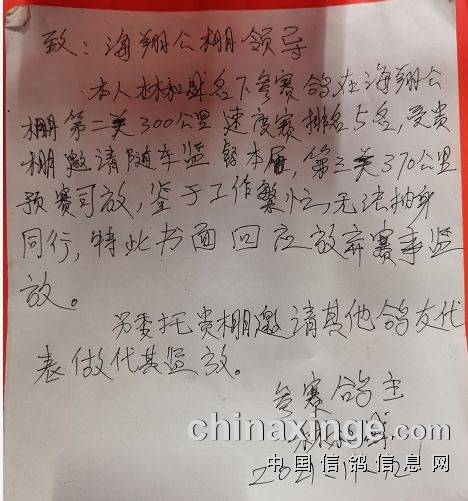 致：海翔公棚领导
本人林和盛名下参赛鸽在海翔公
棚第二关300公里速度赛排名5名,受贵
棚邀请随车监督本届,第三关370公里
预赛司放,鉴于工作繁忙,无法抽身
同行,特此书面回应放弃赛事监
放。
另委托贵棚邀请其他鸽友代
表做代其监放。
参赛鸽主
chinaxinge.com
中国信鸽信息网